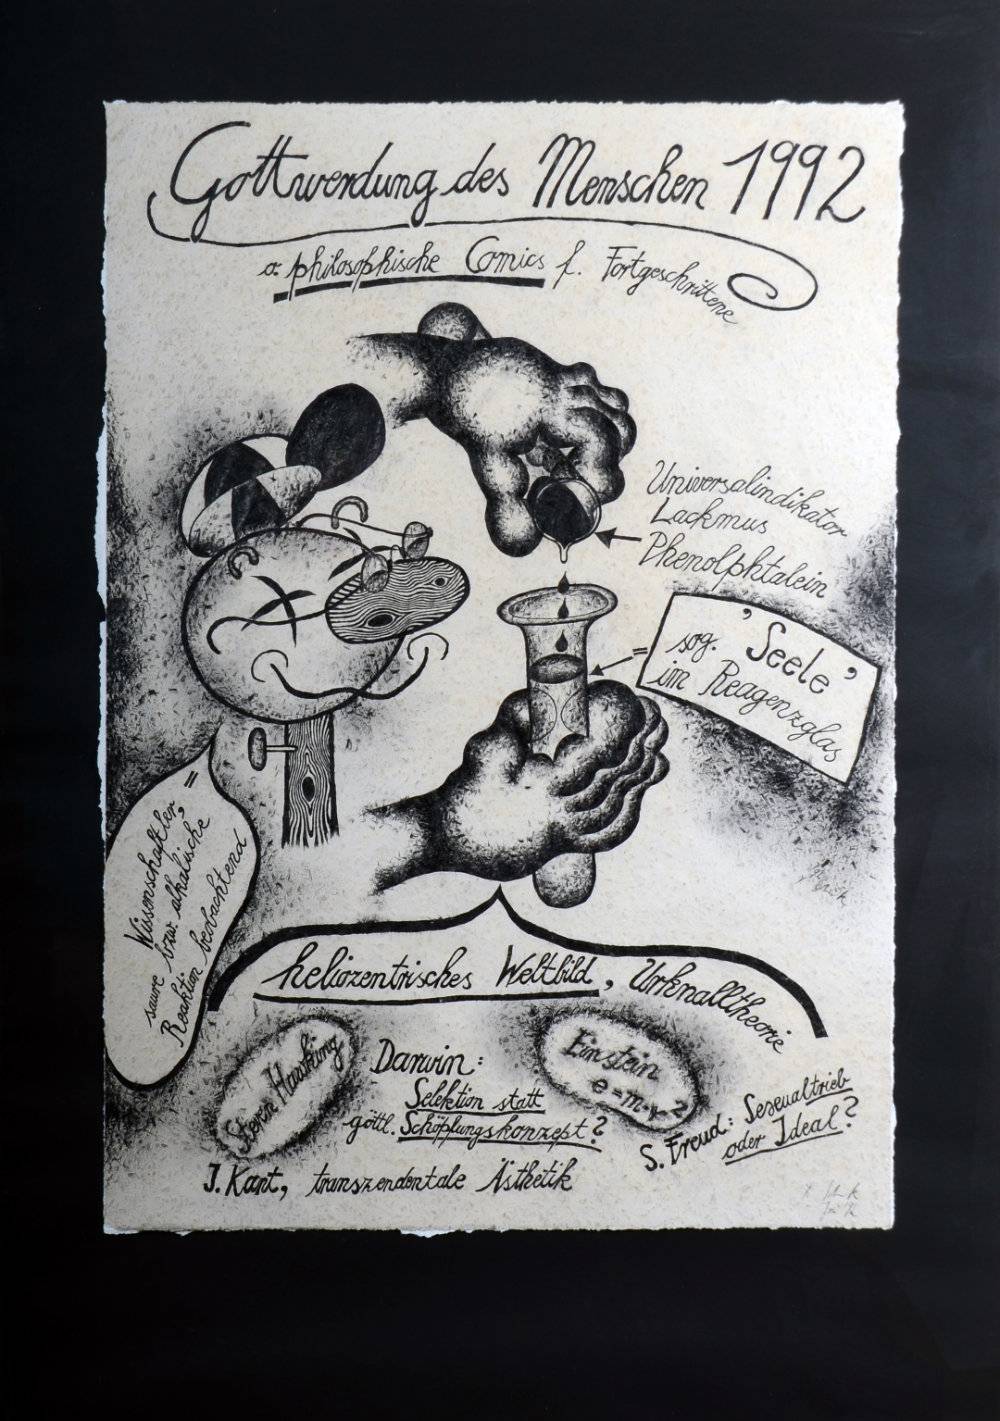 Gottwerdung des Menschen 1992
o: philosophische Comics f. Fortgeschrittene
Universalindikator
Lackmus
Phenolphtalein
= sog. 'Seele'
im Reagenzglas
Wissenschaftler, =
saure bzw. alkalische
Reaktion beobachtend
heliozentrisches Weltbild, Urknalltheorie
Steven Hawking
Darwin:
Selektion statt
göttl. Schöpfungskonzept?
Einstein
e=m·v²
S. Freud: Sexualtrieb
oder Ideal?
J. Kant, transzendentale Ästhetik